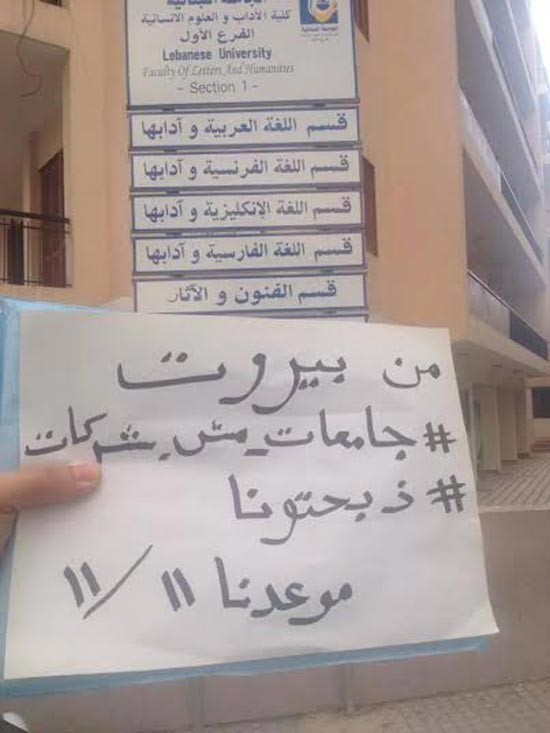 الجامعة اللبنانية
كلية الآداب و العلوم الانسانية
الفرع الأول
Lebanese University
Faculty Of Letters And Humanities
- Section 1 -
قسم اللغة العربية و آدابها
قسم اللغة الفرنسية و آدابها
قسم اللغة الإنكليزية و آدابها
قسم اللغة الفارسية و آدابها
قسم الفنون و الآثار
من بيروت
#جامعات_مش_شركات
#ذبحتونا
موعدنا ١١/١١